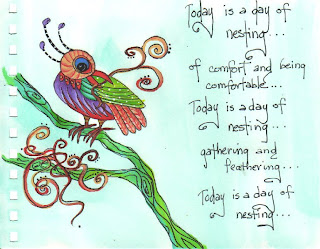 Today is a day of
nesting...
of comfort and being
comfortable...
Today is a day of
nesting...
gathering and
feathering...
Today is a day of
nesting...